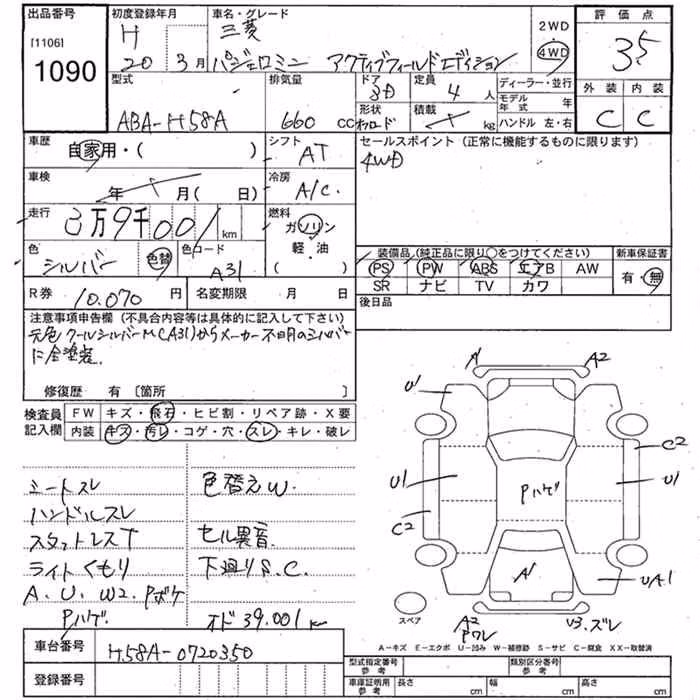 出品番号
[1106]
1090
初度登録年月
H
20 3月
車名・グレード
三菱
パジェロミニ アクティブフィールドエディション
2WD
4WD
評価点
3.5
外装 内装
C C
型式
ABA-H58A
排気量
660 CC
ドア
3D
形状
定員
4 人
積載
kg
ディーラー・並行
モデル年式 年
ハンドル 左・右
車歴
自家用・( )
シフト
AT
セールスポイント(正常に機能するものに限ります)
4WD
車検
年 月( 日)
冷房
A/C
走行
3万9千001km
燃料
ガソリン
軽・油
( )
色
シルバー
色替
色コード
A31
装備品(純正品に限り○をつけてください)
PS PW ABS エアB AW
SR ナビ TV カワ
新車保証書
有・無
R券 10.070 円
名変期限 月 日
後日品
注意事項申告欄(不具合内容等は具体的に記入して下さい)
元色クールシルバーM(A31)からメーカー不明のシルバー
に全塗装。
修復歴 有 [箇所 ]
検査員記入欄
FW キズ・飛石・ヒビ割・リペア跡・X要
内装 キズ・汚レ・コゲ・穴・スレ・キレ・破レ
シートスレ
ハンドルスレ
スタットレスT
ライトくもり
A.U.W2.Pボケ
Pハゲ
色替えW.
セル異音.
下廻りS.C.
オド39.001km
車台番号
H58A-0720350
登録番号
A A2
U U1 C2 C2 U1
Pハゲ
A
UA1
スペア
A2
Pワレ
U3.ズレ
A-キズ E-エクボ U-凹み W-補修跡 S-サビ C-腐食 XX-取替済
型式指定番号
参考
類別区分番号
車庫証明用
参考
長さ cm
幅 cm
高さ cm